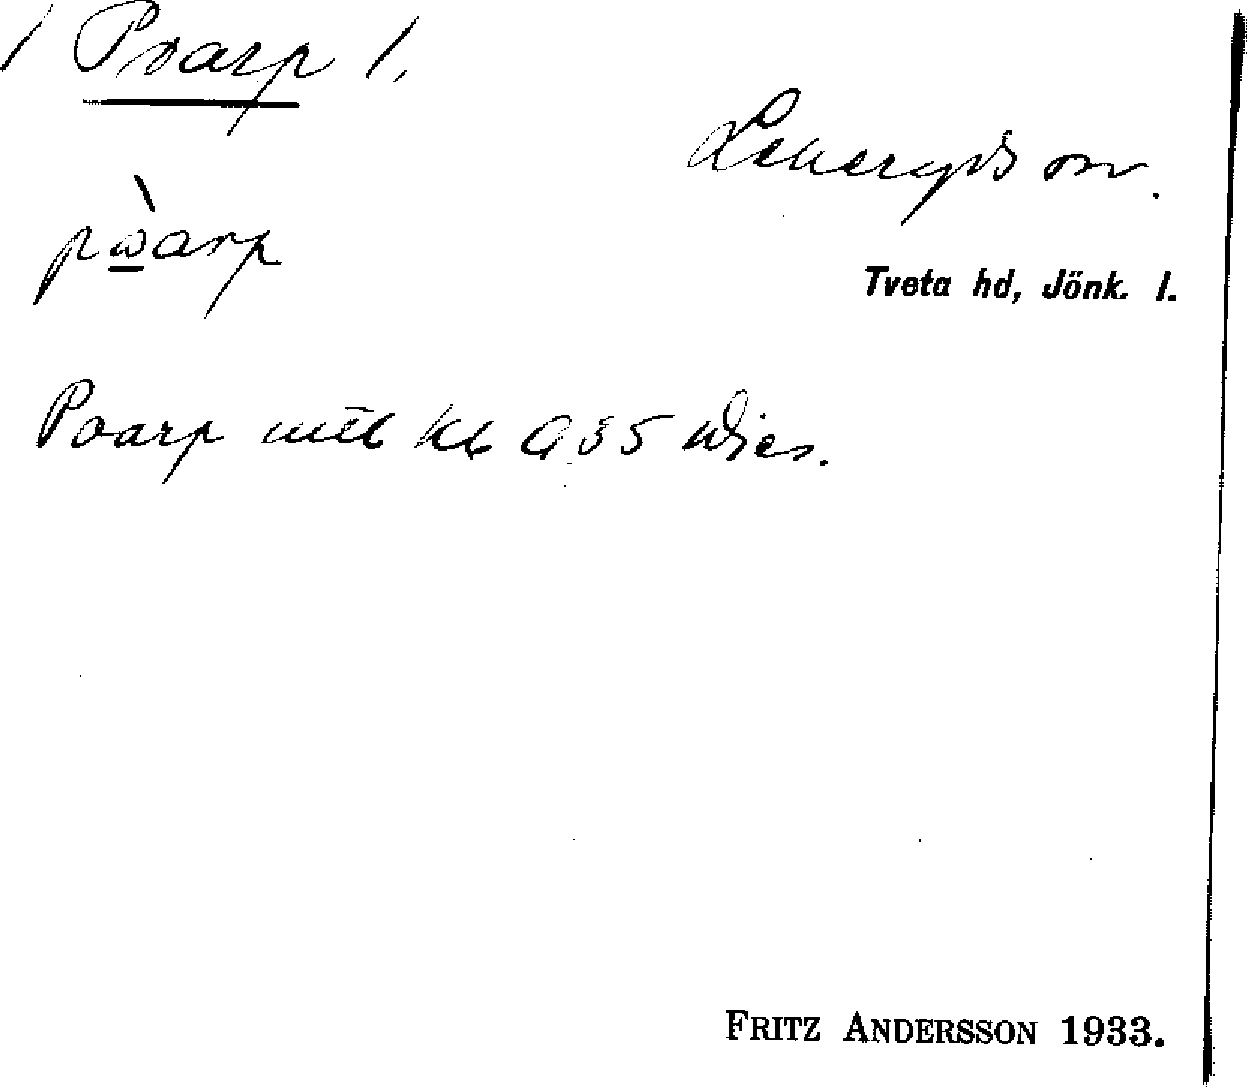 / Poarp /.
Lekeryds sn.
pωarp
Tveta hd, Jönk. l.
Poarp mtl kb 935 Wies.
FRITZ ANDERSSON 1933.